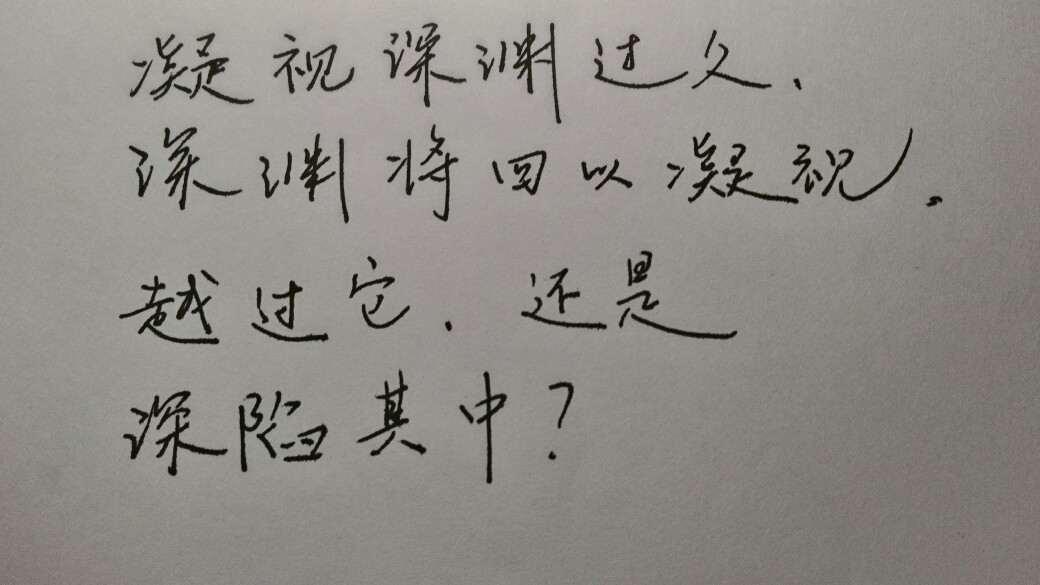 凝视深渊过久，
深渊将回以凝视。
越过它，还是
深陷其中？